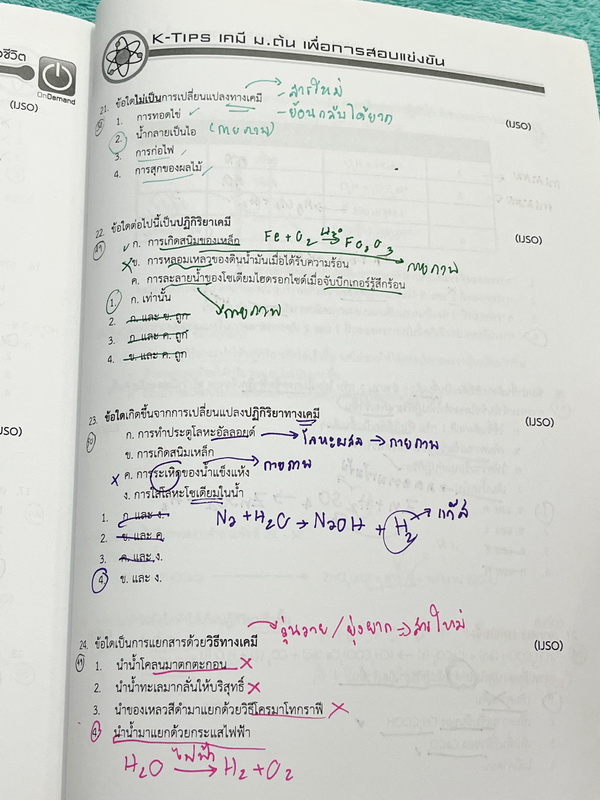 K-TIPS เคมี ม.ต้น เพื่อการสอบแข่งขัน
ชีวิต
OnDemand
(IJSO)
21. ข้อใดไม่เป็นการเปลี่ยนแปลงทางเคมี - สารใหม่
- ย้อนกลับได้ยาก
(IJSO)
1. การทอดไข่
2. น้ำกลายเป็นไอ (กายภาพ)
3. การก่อไฟ
4. การสุกของผลไม้
22. ข้อใดต่อไปนี้เป็นปฏิกิริยาเคมี
(IJSO)
ก. การเกิดสนิมของเหล็ก Fe + O2 → Fe2O3
ข. การหลอมเหลวของดินน้ำมันเมื่อได้รับความร้อน กายภาพ
ค. การละลายน้ำของโซเดียมไฮดรอกไซด์เมื่อจับบีกเกอร์รู้สึกร้อน
1. ก. เท่านั้น
กายภาพ
2. ก. และ ข. ถูก
3. ก. และ ค. ถูก
4. ข. และ ค. ถูก
23. ข้อใดเกิดขึ้นจากการเปลี่ยนแปลงปฏิกิริยาทางเคมี
(IJSO)
(IJSO)
ก. การทำประตูโลหะอัลลอยด์ → โลหะผสม → กายภาพ
ข. การเกิดสนิมเหล็ก
ค. การระเหิดของน้ำแข็งแห้ง กายภาพ
ง. การใส่โลหะโซเดียมในน้ำ
1. ก. และ ง.
Na + H2O → NaOH + H2 → แก๊ส
2. ข. และ ค.
3. ค. และ ง.
4. ข. และ ง.
24. ข้อใดเป็นการแยกสารด้วยวิธีทางเคมี วุ่นวาย / ยุ่งยาก ⇒ สารใหม่
(IJSO)
1. นำน้ำโคลนมาตกตะกอน ×
2. นำน้ำทะเลมากลั่นให้บริสุทธิ์ ×
3. นำของเหลวสีดำมาแยกด้วยวิธีโครมาโทกราฟี ×
4. นำน้ำมาแยกด้วยกระแสไฟฟ้า
H2O ไฟฟ้า → H2 + O2